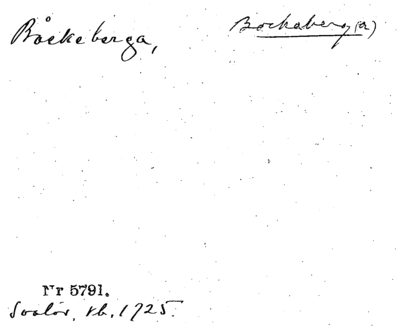 Båckeberga,
Bockaberg(a)
Nr 5791.
Svalöv, kb, 1725.